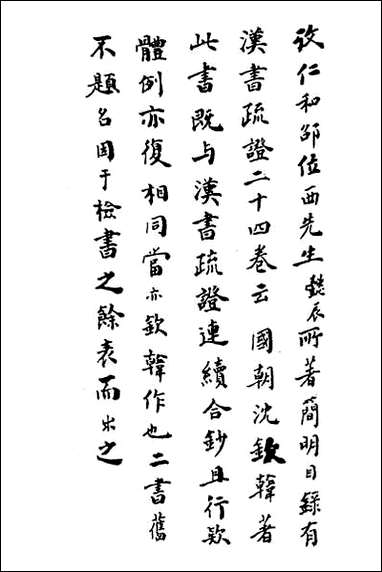 攷仁和邵位西先生懿辰所著簡明目錄有
漢書疏證二十四卷云國朝沈欽韓著
此書既与漢書疏證連續合鈔且行欵
體例亦復相同當亦欽韓作也二書舊
不題名因于檢書之餘表而出之